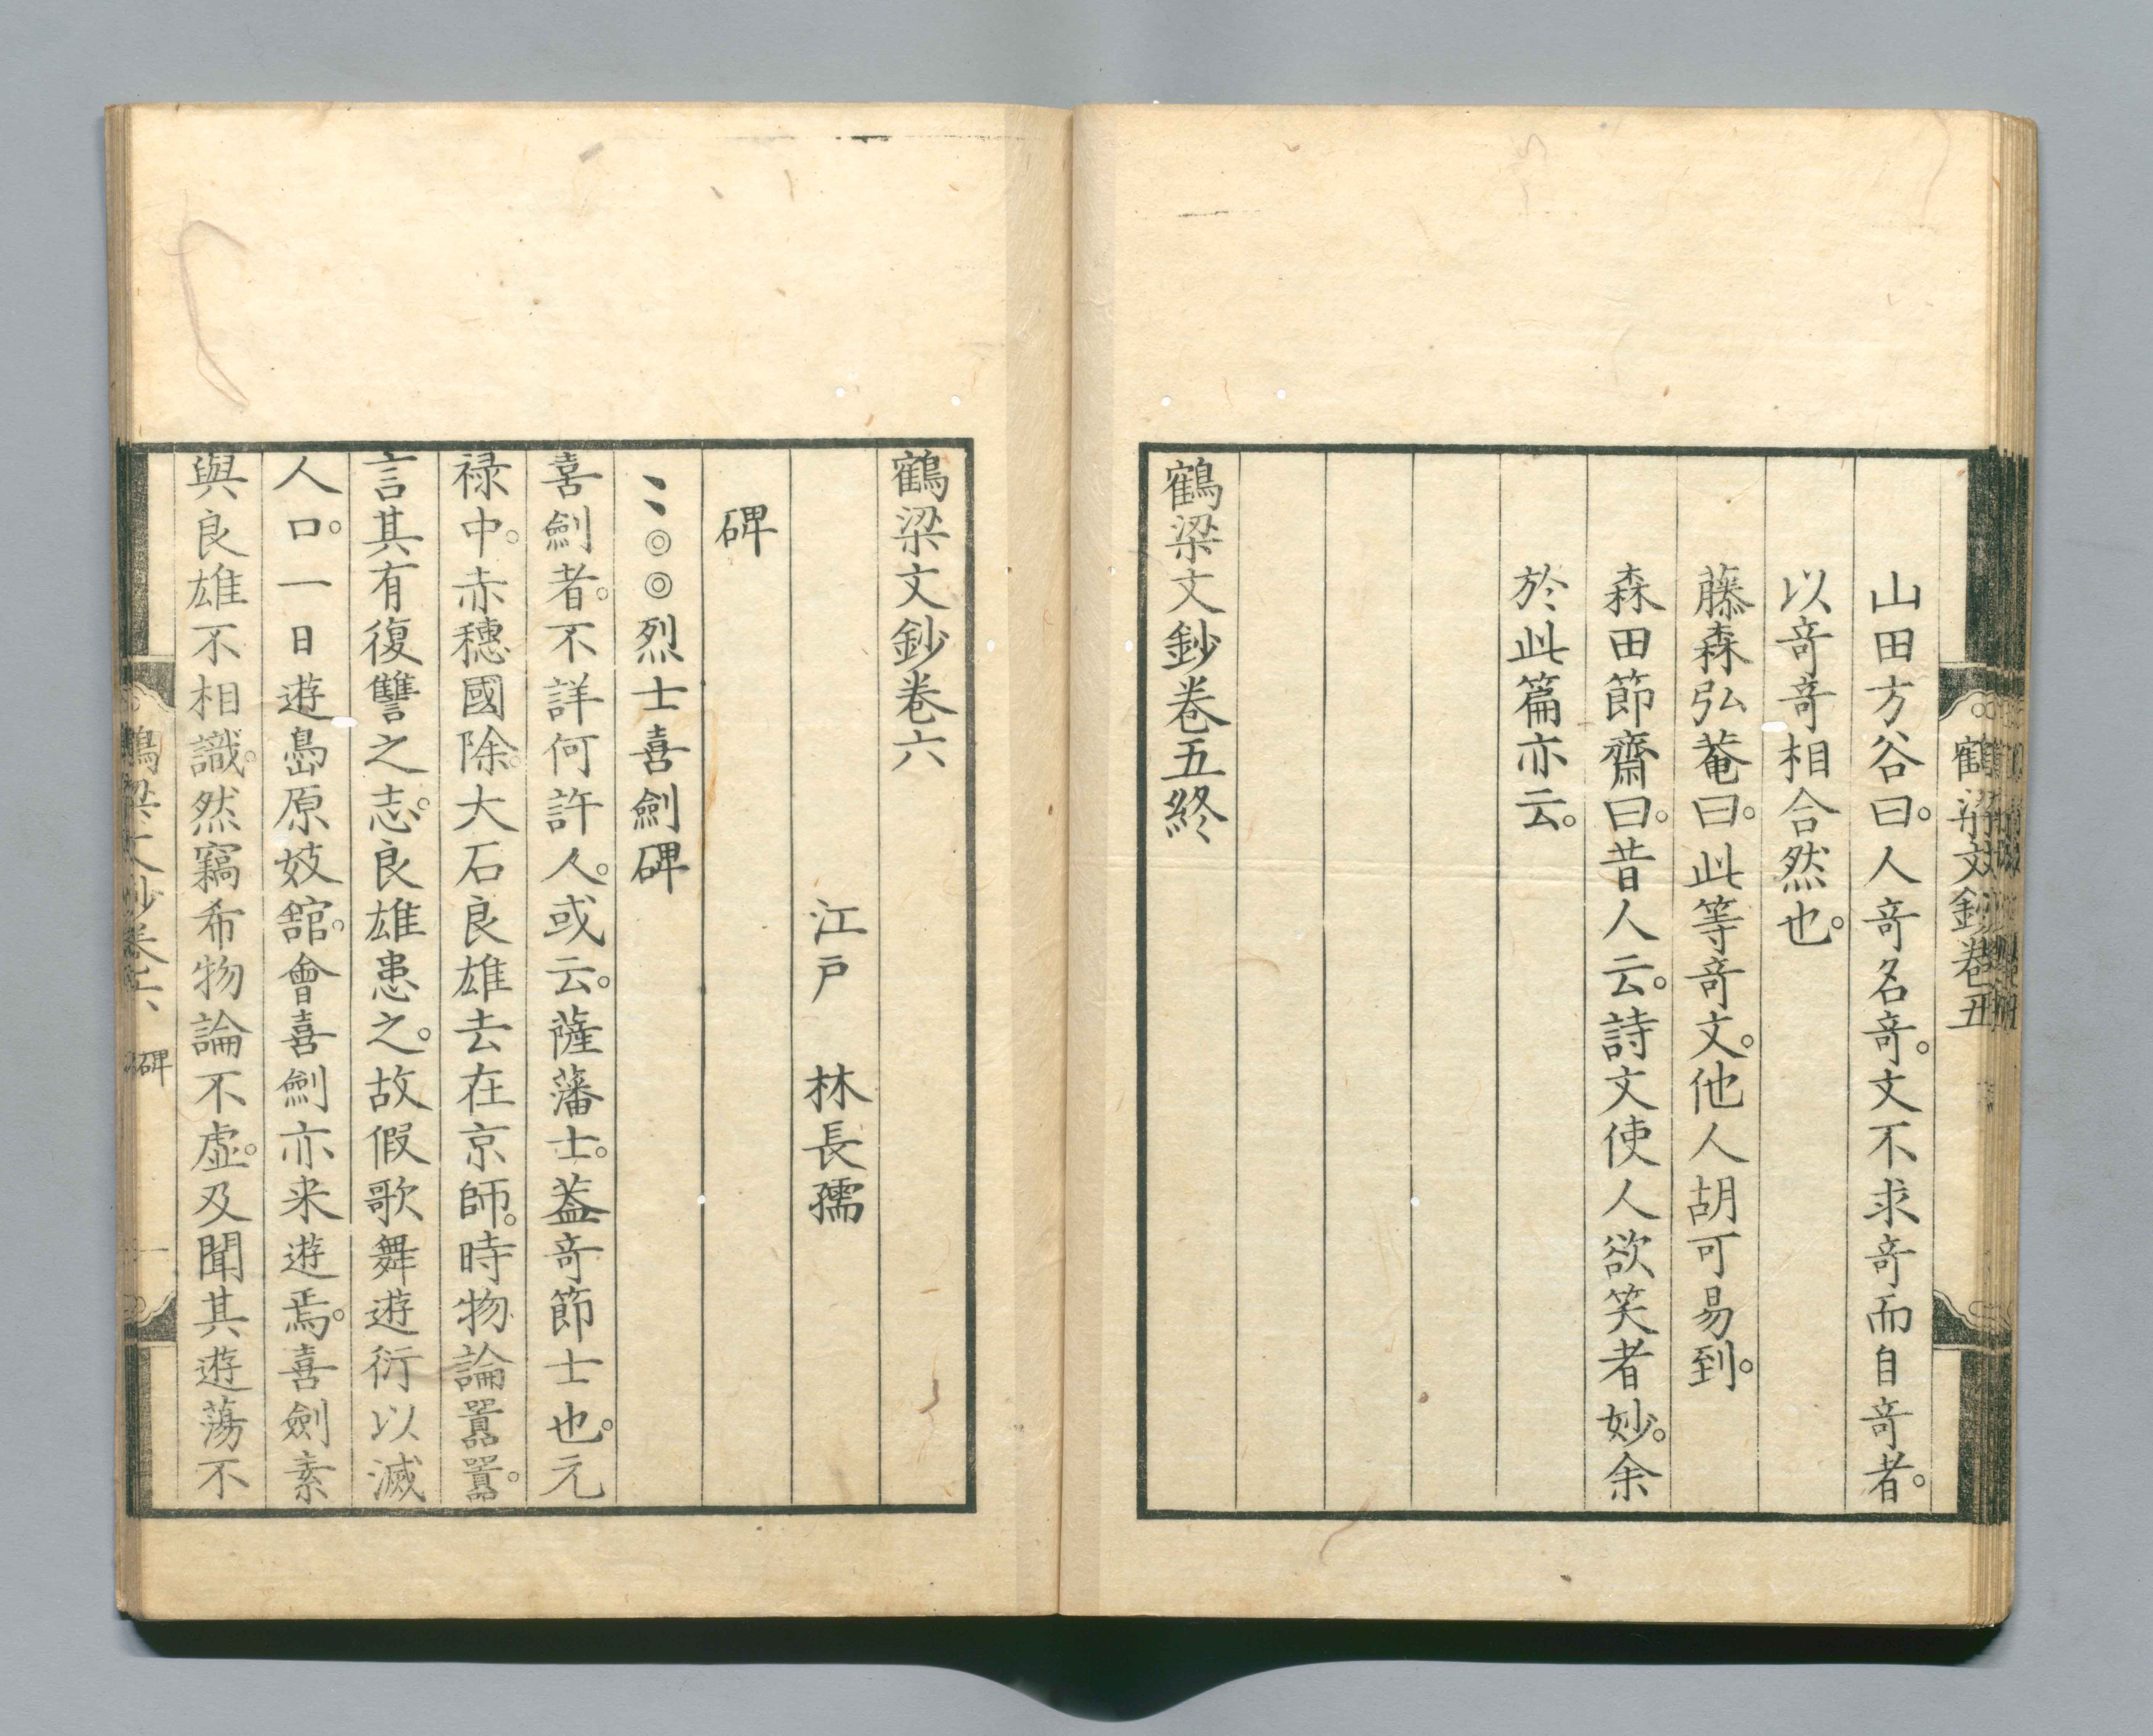 鶴梁文鈔卷五
山田方谷曰。人竒名竒。文不求竒而自竒者。
以竒竒相合然也。
藤森弘菴曰。此等竒文。他人胡可易到。
森田節齋曰。昔人云。詩文使人欲笑者妙。余
於此篇亦云。
鶴梁文鈔卷五終
鶴梁文鈔卷六
江戸 林長孺
碑
﹅﹅◎◎烈士喜劍碑
喜劍者。不詳何許人。或云。薩藩士。葢竒節士也。元
禄中。赤穗國除。大石良雄去在京師。時物論囂囂。
言其有復讐之志。良雄患之。故假歌舞遊衍以滅
人口。一日遊嶌原妓舘。會喜劍亦来遊焉。喜劍素
與良雄不相識。然竊希物論不虛。及聞其遊蕩不
鶴梁文鈔卷六 碑 一